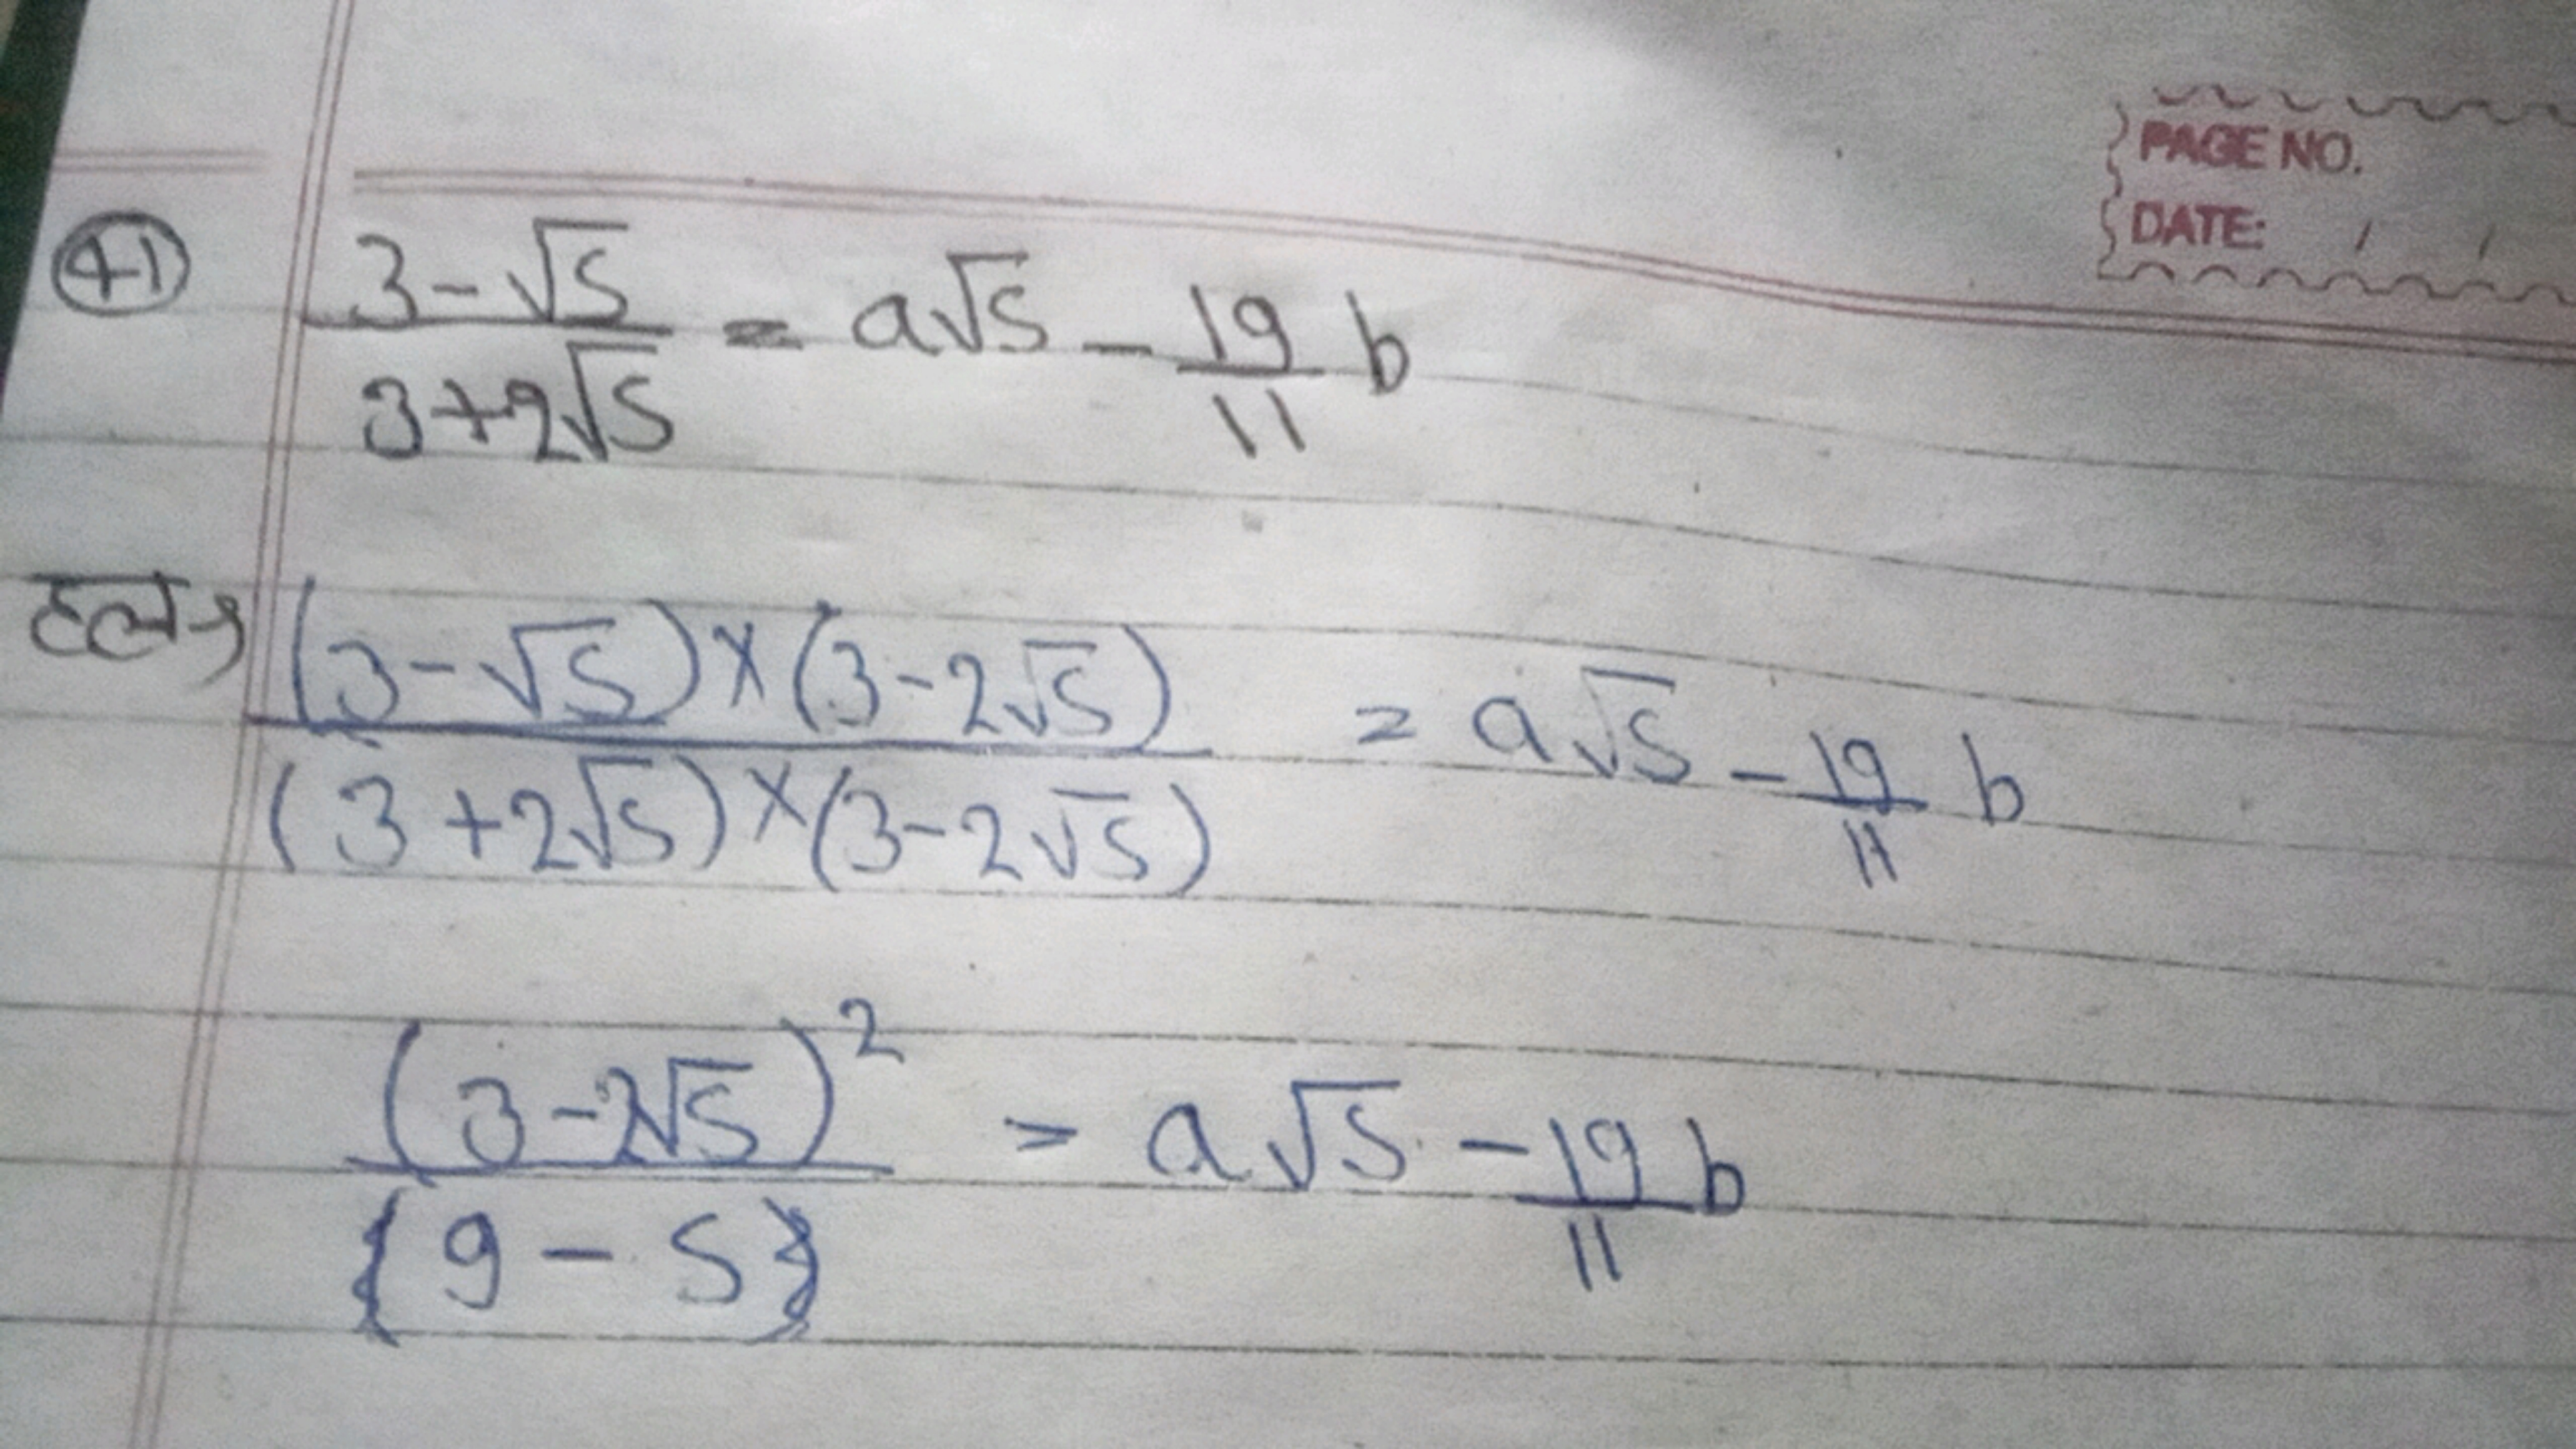 PAGE NO.
DATE: / /
41 3-√5 / 3+2√5 = a√5 - 19/11 b
हल→ (3-√5)×(3-2√5) / (3+2√5)×(3-2√5) = a√5 - 19/11 b
(3-2√5)² / {9-5} = a√5 - 19/11 b